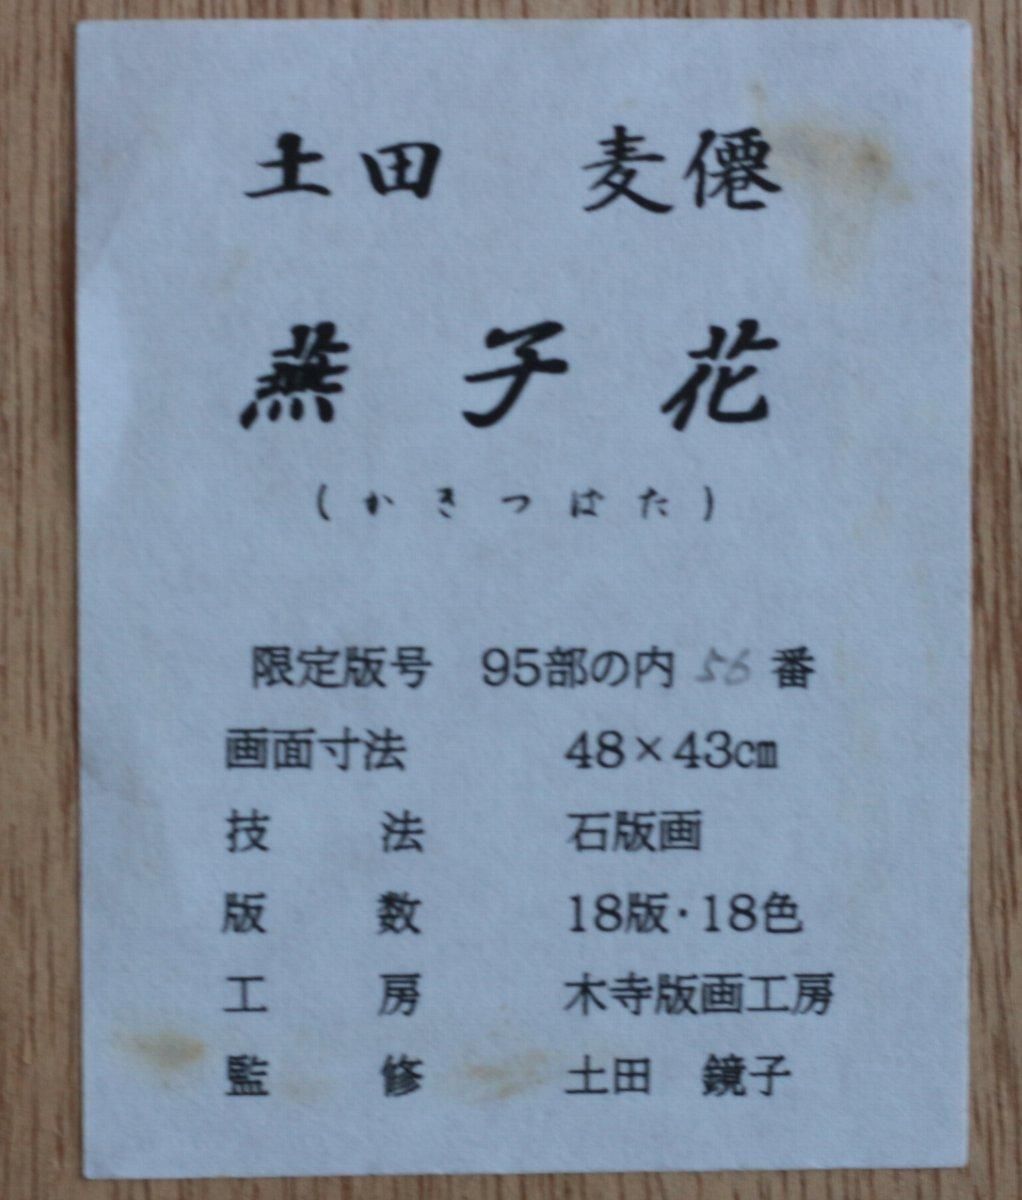 土田　麦僊
燕子花
(かきつばた)
限定版号　95部の内 56 番
画面寸法　48×43㎝
技法　石版画
版数　18版・18色
工房　木寺版画工房
監修　土田　鏡子